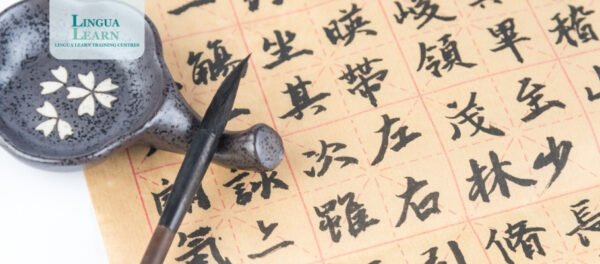 LINGUA
LEARN
LINGUA LEARN TRAINING CENTRES
稽
畢至少長
峻領茂林脩
暎帶左右引
坐其次雖
觴
詠
氣